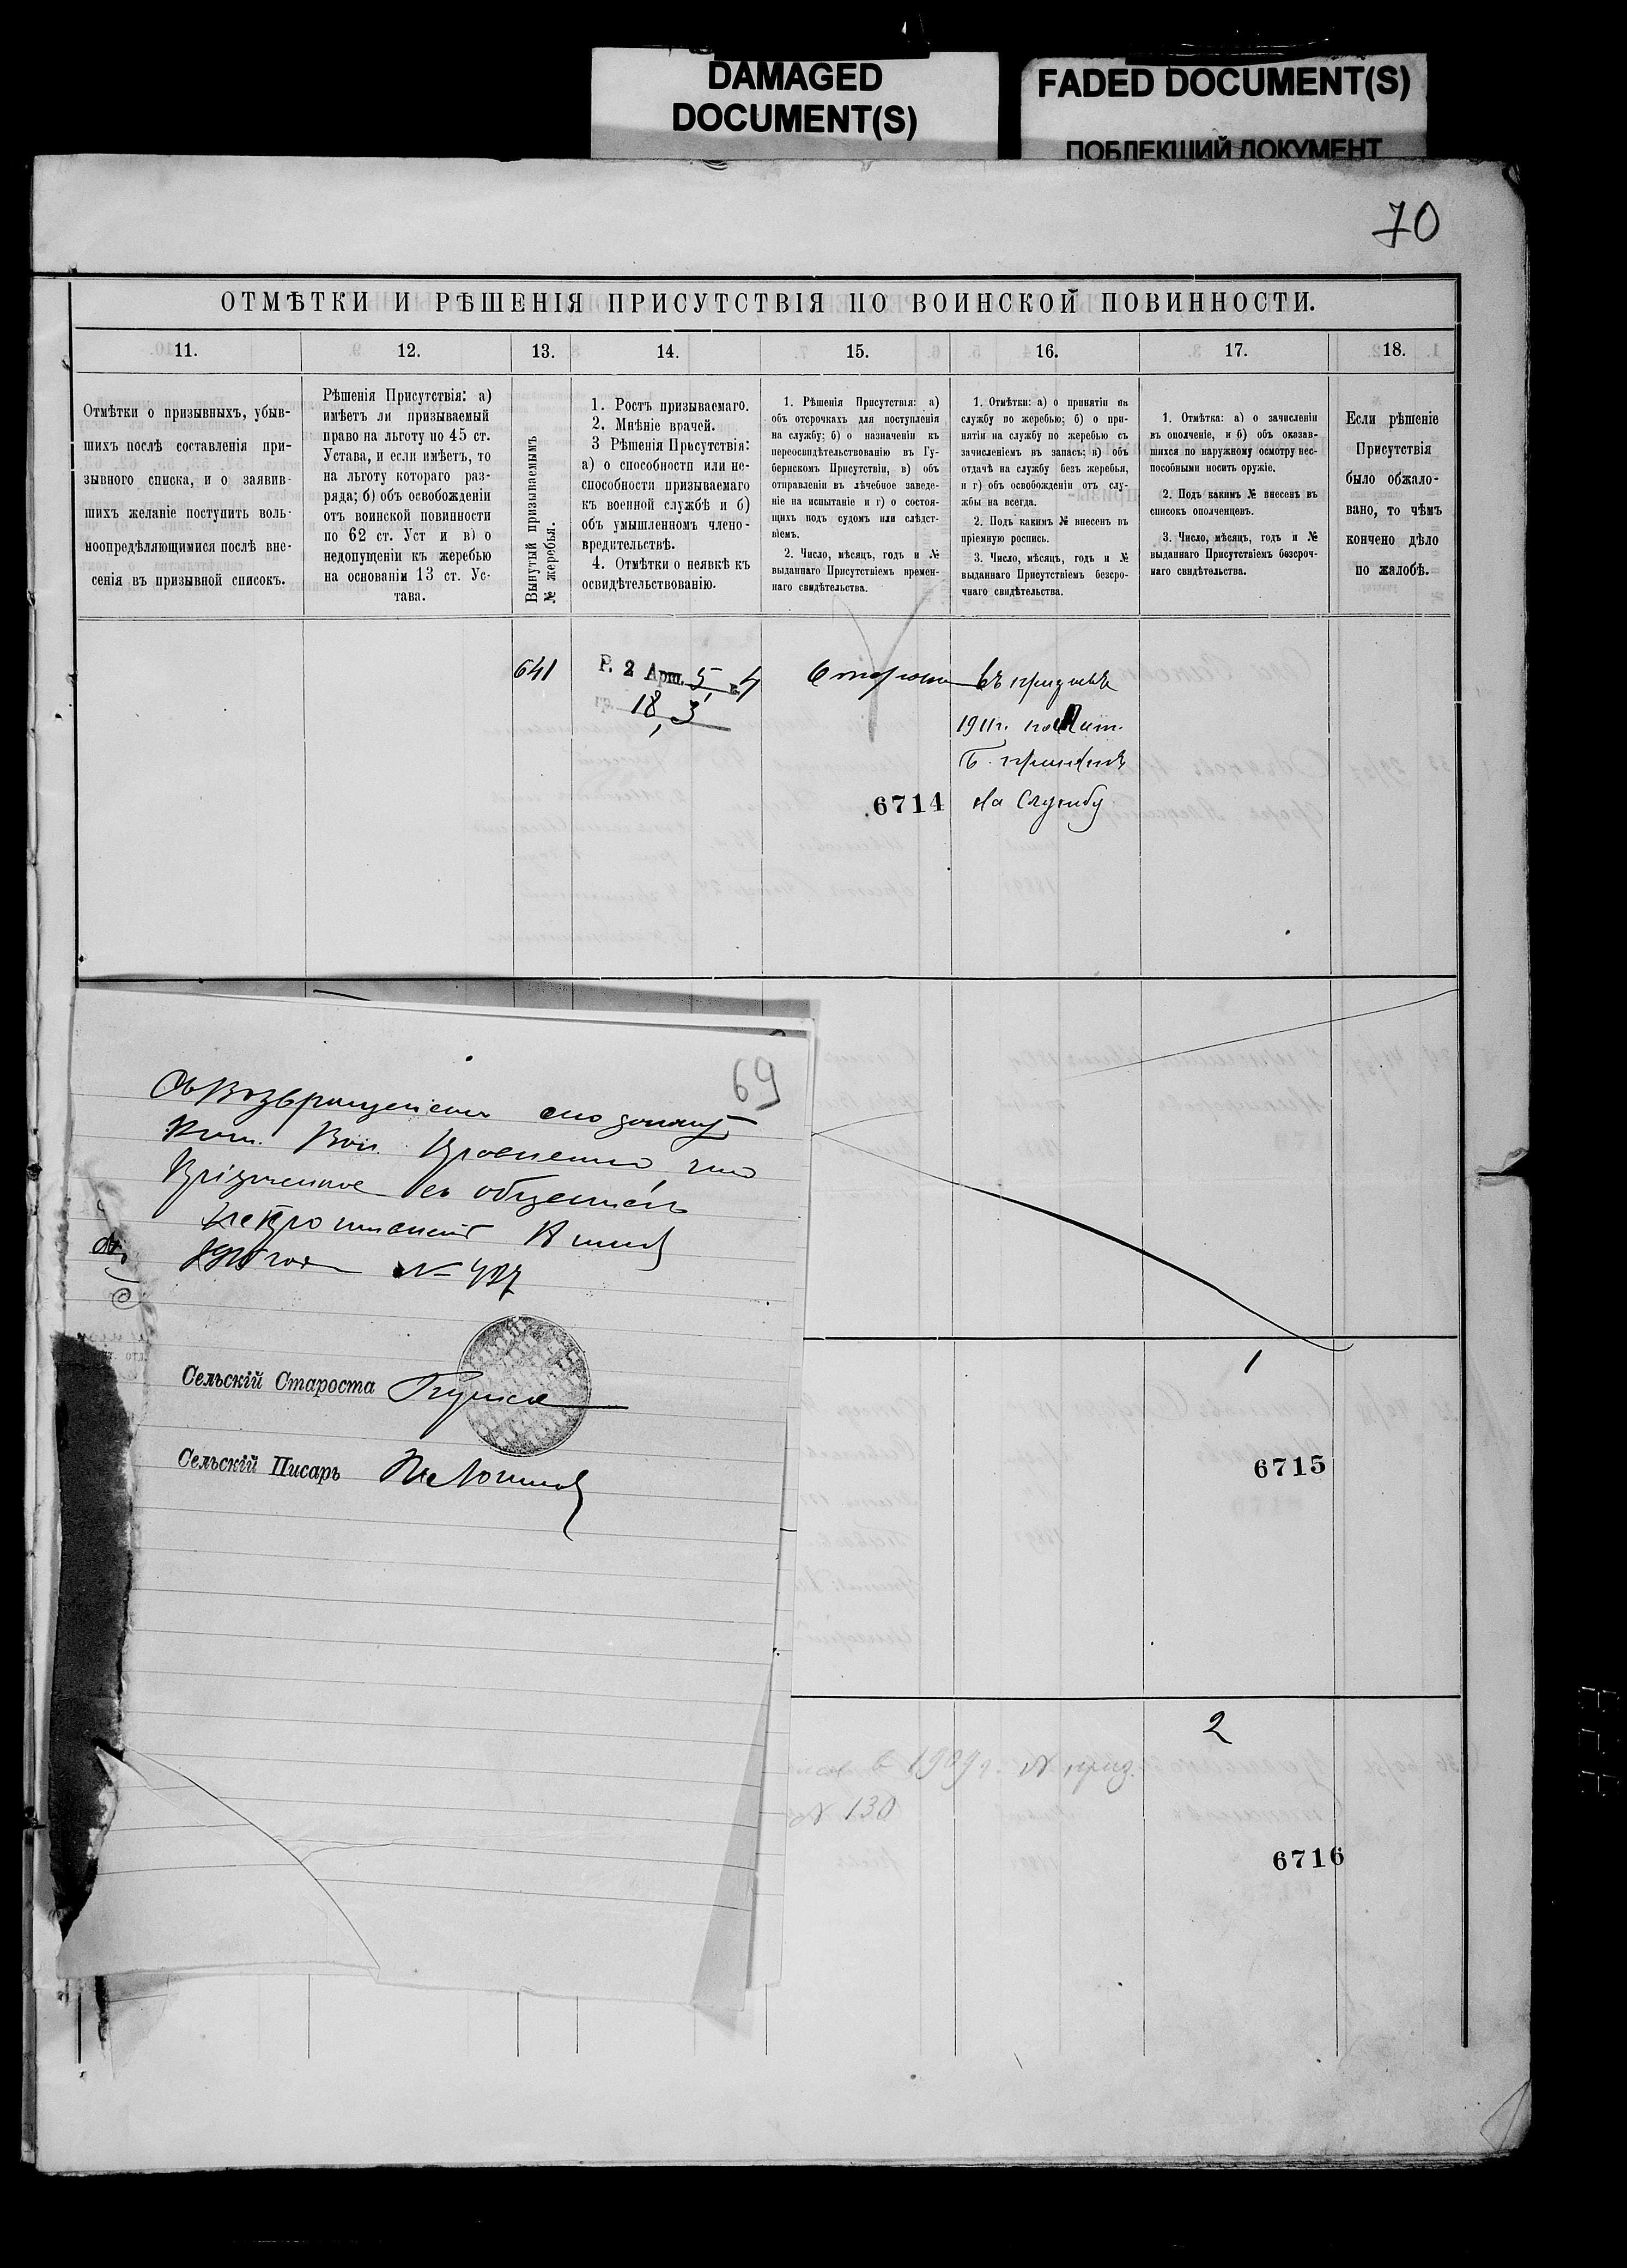 DAMAGED
DOCUMENT(S)
FADED DOCUMENT(S)
ПОБЛЕКШИЙ ДОКУМЕНТ
70
ОТМѢТКИ И РѢШЕНІЯ ПРИСУТСТВІЯ ПО ВОИНСКОЙ ПОВИННОСТИ.
11.
12.
13.
14.
15.
16.
17.
18.
Отмѣтки о призывныхъ, убыв-
шихъ послѣ составленія при-
зывного списка, и о заявив-
шихъ желаніе поступить воль-
ноопредѣляющимися послѣ вне-
сенія въ призывной списокъ.
Рѣшенія Присутствія: а)
имѣетъ ли призываемый
право на льготу по 45 ст.
Устава, и если имѣетъ, то
на льготу котораго раз-
ряда; б) объ освобожденіи
отъ воинской повинности
по 62 ст. Уст и в) о
недопущеніи къ жеребью
на основаніи 13 ст. Ус-
тава.
Вынутый призываемымъ
№ жеребья.
1. Ростъ призываемаго.
2. Мнѣніе врачей.
3 Рѣшенія Присутствія:
а) о способности или не-
способности призываемаго
къ военной службѣ и б)
объ умышленномъ члено-
вредительствѣ.
4. Отмѣтки о неявкѣ къ
освидѣтельствованію.
1. Рѣшенія Присутствія: а)
объ отсрочкахъ для поступленія
на службу; б) о назначеніи къ
переосвидѣтельствованію въ Гу-
бернскомъ Присутствіи, в) объ
отправленіи въ лѣчебное заведе-
ніе на испытаніе и г) о состоя-
щихъ подъ судомъ или слѣдст-
віемъ.
2. Число, мѣсяцъ, годъ и №
выданнаго Присутствіемъ времен-
наго свидѣтельства.
1. Отмѣтки: а) о принятіи на
службу по жеребью; б) о при-
нятіи на службу по жеребью съ
зачисленіемъ въ запасъ; в) объ
отдачѣ на службу безъ жеребья,
и г) объ освобожденіи отъ слу-
жбы на всегда.
2. Подъ какимъ № внесенъ въ
пріемную роспись.
3. Число, мѣсяцъ, годъ и №
выданнаго Присутствіемъ безсро-
чнаго свидѣтельства.
1. Отмѣтка: а) о зачисленіи
въ ополченіе, и б) объ оказав-
шихся по наружному осмотру нес-
пособными носить оружіе.
2. Подъ какимъ № внесенъ въ
списокъ ополченцевъ.
3. Число, мѣсяцъ, годъ и №
выданнаго Присутствіемъ безсроч-
наго свидѣтельства.
Если рѣшеніе
Присутствія
было обжало-
вано, то чѣмъ
кончено дѣло
по жалобѣ.
641
Р. 2 Арш. 5 в. 4
гр. 18, 3
въ призывѣ
1911г. по лит.
Б. принятъ
на службу
6714
69
№ 427
Сельскій Староста
Сельскій Писарь
1
6715
2
в 1909 г. № приз.
№ 130
6716